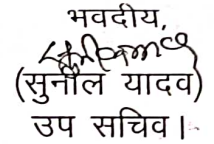 भवदीय,
(सुनील यादव)
उप सचिव।